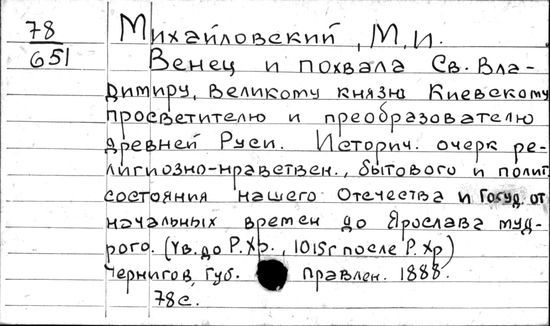 78
651
Михайловский, М. И.
Венец и похвала Св. Вла-
димиру, великому князю Киевскому
просветителю и преобразователю
древней Руси. Историч. очерк ре-
лигиозно-нравствен., бытового и полит.
состояния нашего Отечества и Госуд. от
начальных времен до Ярослава муд-
рого. (Iв. до Р. Хр., 1015г после Р. Хр)
Чернигов, Губ. правлен. 1888.
78с.